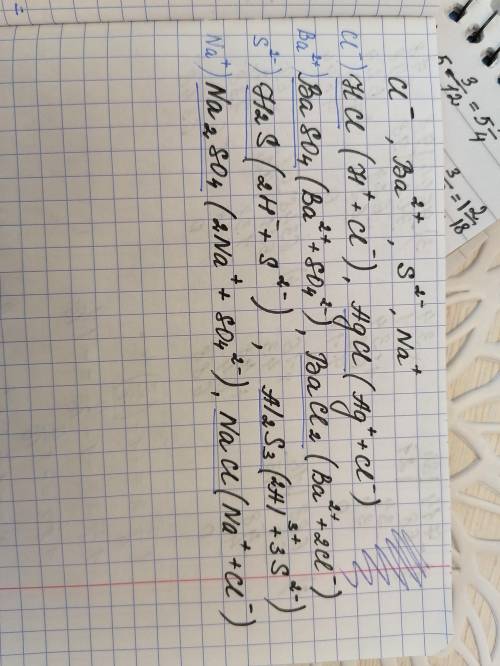 Cl⁻, Ba²⁺, S²⁻, Na⁺
Cl⁻) HCl (H⁺ + Cl⁻), AgCl (Ag⁺ + Cl⁻)
Ba²⁺) BaSO₄ (Ba²⁺ + SO₄²⁻), BaCl₂ (Ba²⁺ + 2Cl⁻)
S²⁻) H₂S (2H⁻ + S²⁻), Al₂S₃ (2Al³⁺ + 3S²⁻)
Na⁺) Na₂SO₄ (2Na⁺ + SO₄²⁻), NaCl (Na⁺ + Cl⁻)